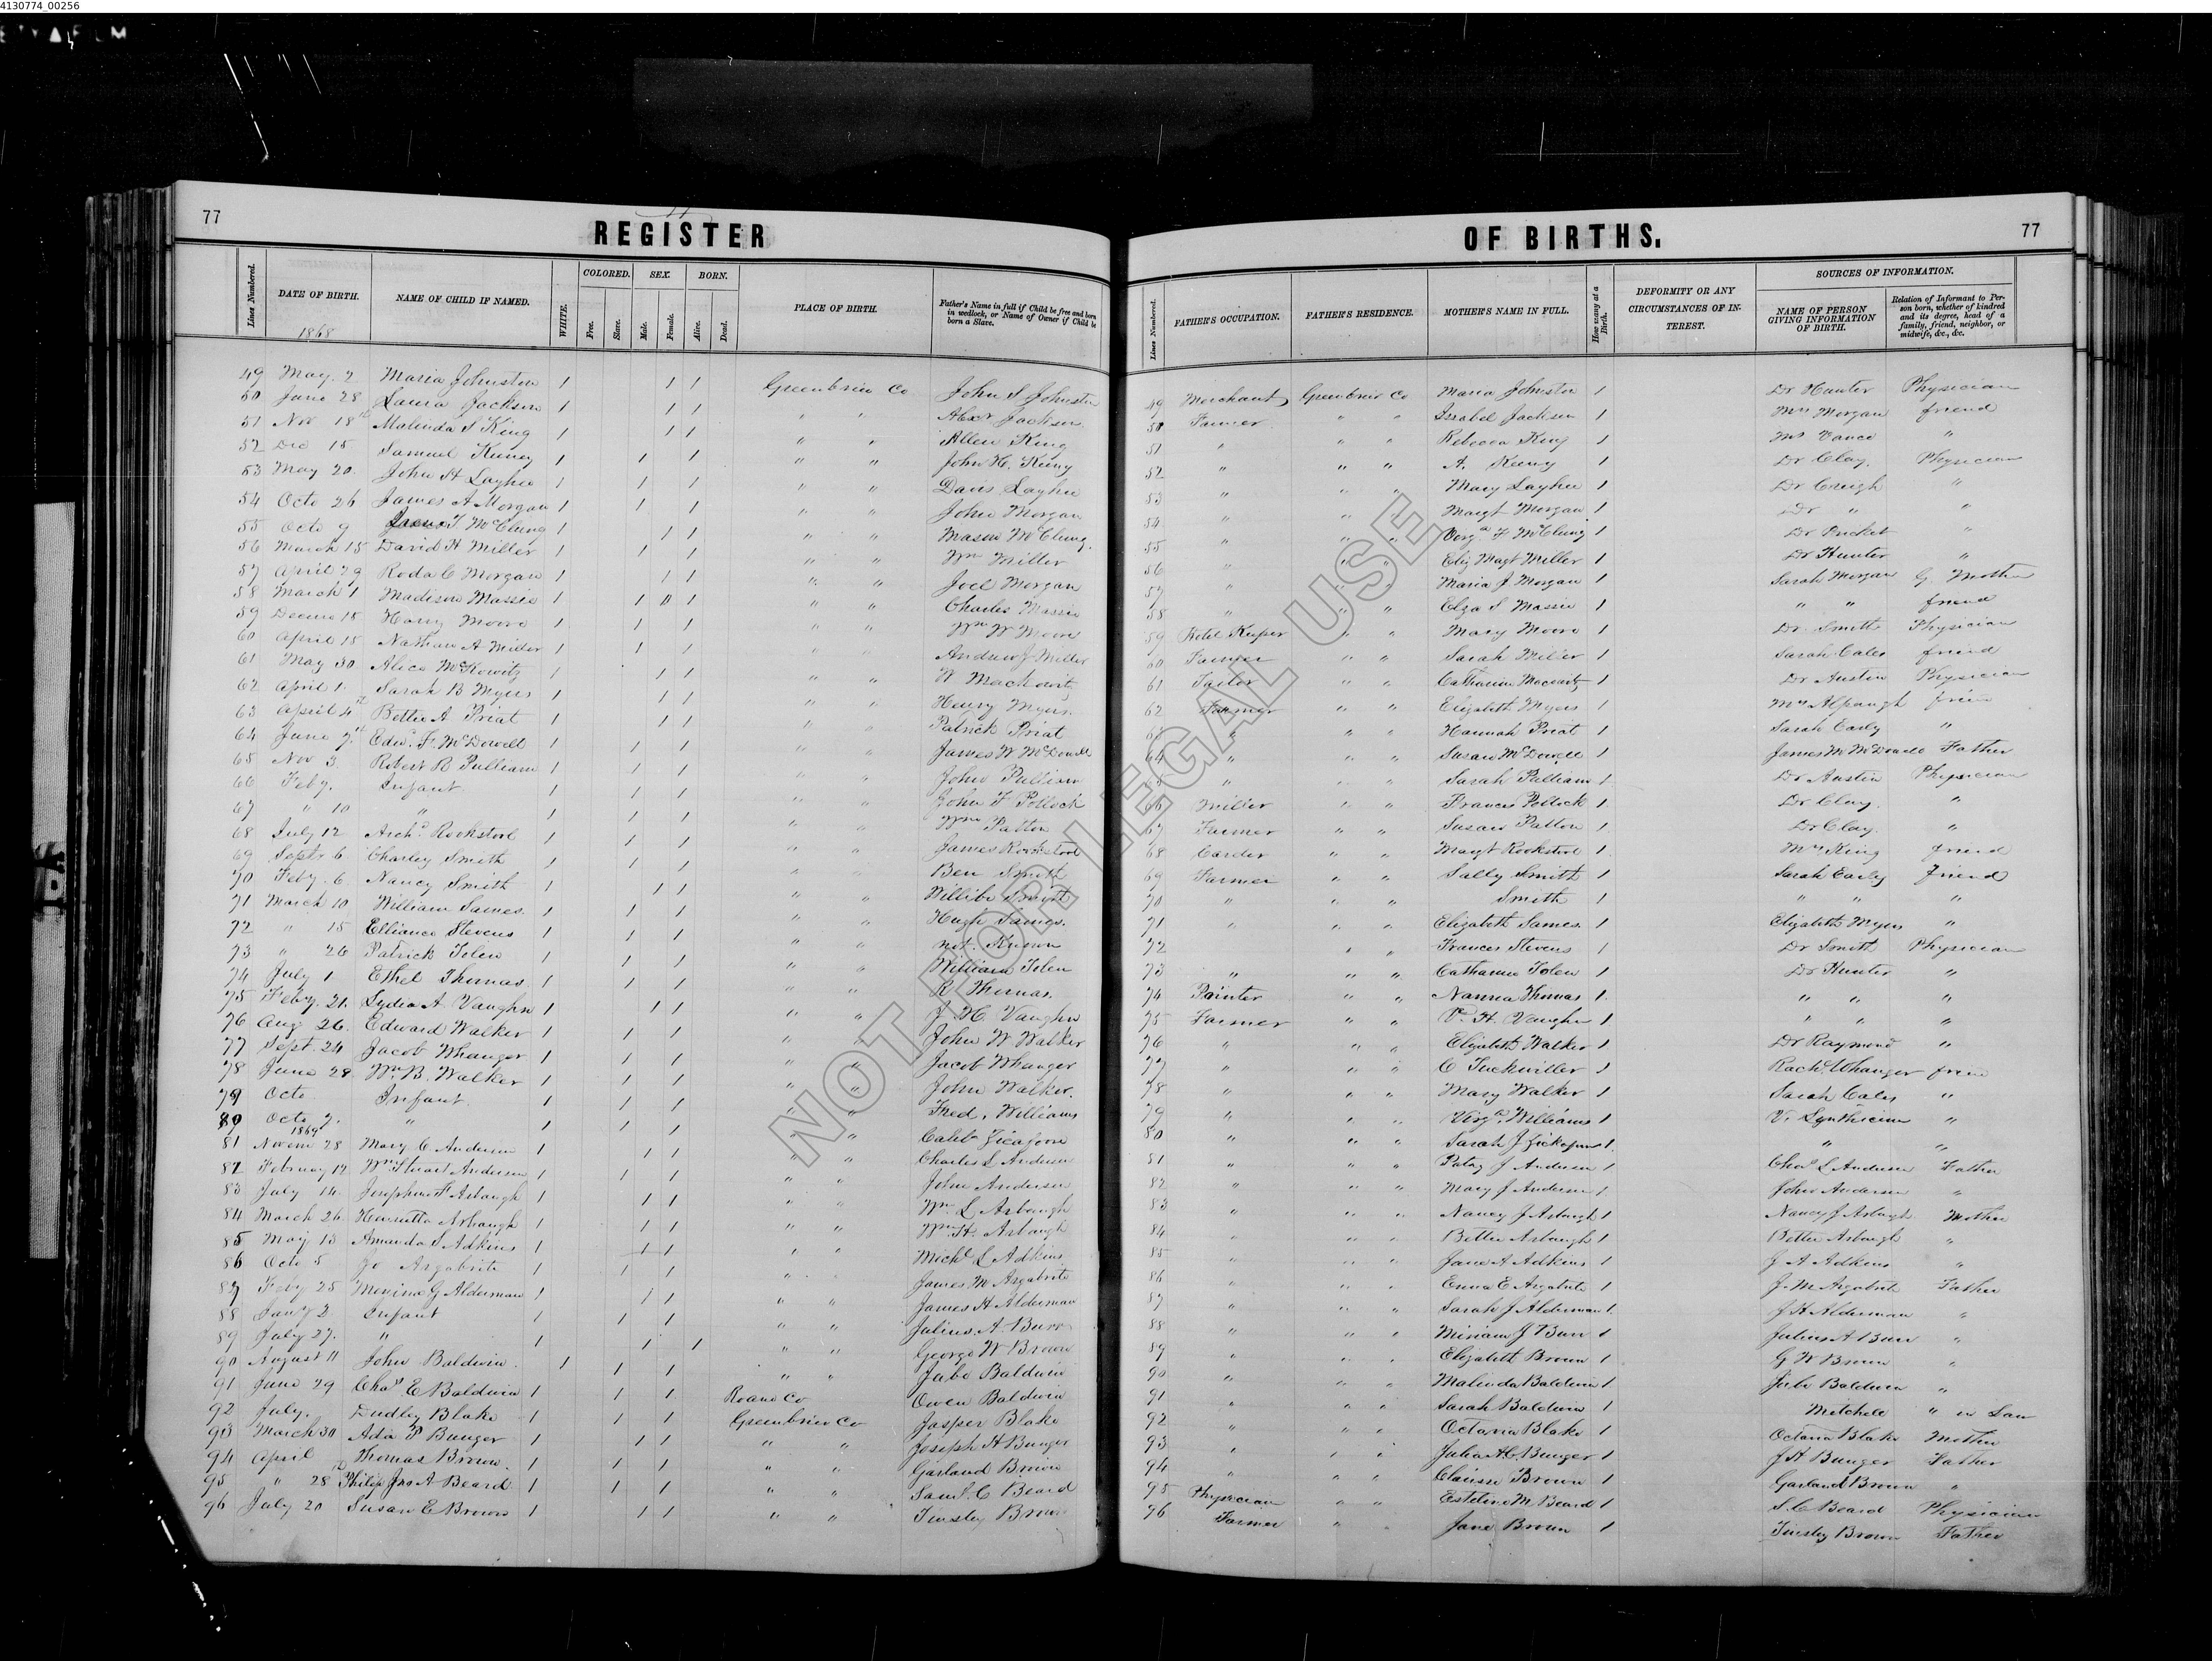 4130774_00256
77
REGISTER
OF BIRTHS.
77
Lines Numbered.
DATE OF BIRTH.
1868
NAME OF CHILD IF NAMED.
WHITE.
COLORED.
Free.
Slave.
SEX.
Male.
Female.
BORN.
Alive.
Dead.
PLACE OF BIRTH.
Father's Name in full if Child be free and born in wedlock, or Name of Owner if Child be born a Slave.
Lines Numbered.
FATHER'S OCCUPATION.
FATHER'S RESIDENCE.
MOTHER'S NAME IN FULL.
How many at a Birth.
DEFORMITY OR ANY CIRCUMSTANCES OF INTEREST.
SOURCES OF INFORMATION.
NAME OF PERSON GIVING INFORMATION OF BIRTH.
Relation of Informant to Person born, whether of kindred and its degree, head of a family, friend, neighbor, or midwife, &c., &c.
49 May 2 Maria Johnston 1 1 1 Greenbrier Co John S Johnston 49 Merchant Greenbrier Co Maria Johnston 1 Dr Hunter Physician
50 June 28 Laura Jackson 1 1 1 " " Alexr Jackson 50 Farmer " " Issabel Jackson 1 Mrs Morgan friend
51 Nov 18th Malinda S King 1 1 1 " " Allen King 51 " " " Rebecca King 1 Mrs Vance "
52 Dec 15 Samuel Keeny 1 1 1 " " John H. Keeny 52 " " " A. Keeny 1 Dr Clay. Physician
53 May 20 John H Layhew 1 1 1 " " Davis Layhew 53 " " " Mary Layhew 1 Dr Creigh "
54 Octo 26 James A Morgan 1 1 1 " " John Morgan 54 " " " Margt Morgan 1 Dr " "
55 Octo 9 T McClung 1 1 1 " " Mason McClung. 55 " " " Virga F McClung 1 Dr Pucket "
56 March 15 David H Miller 1 1 1 " " Wm Miller 56 " " " Eliz Magt Miller 1 Dr Hunter "
57 April 29 Roda C Morgan 1 1 1 " " Joel Morgan 57 " " " Maria J. Morgan 1 Sarah Morgan G. Mother
58 March 1 Madison Massie 1 1 1 " " Charles Massie 58 " " " Elza S Massie 1 " " friend
59 Decem 15 Harry Moore 1 1 1 " " Wm W Moore 59 Hotel Keeper " " Mary Moore 1 Dr. Smith Physician
60 April 15 Nathan A Miller 1 1 1 " " Andrew J Miller 60 Farmer " " Sarah Miller 1 Sarah Cales friend
61 May 30 Alice McKowitz 1 1 1 " " W Mackowitz 61 Tailor " " Catharine 1 Dr Austin Physician
62 April 1. Sarah B Myers 1 1 1 " " Henry Myers. 62 Farmer " " Elizabeth Myers 1 Mrs Alpaugh
63 April 4th Bettie A Priat 1 1 1 " " Patrick Priat 63 " " " Hannah Priat 1 Sarah Early "
64 June 7th Edwd. F. McDowell 1 1 1 " " James W McDowell 64 " " " Susan McDowell 1 James W McDowell Father
65 Nov 3 Robert R Pulliam 1 1 1 " " John Pulliam 65 " " " Sarah Pulliam 1 Dr Austin Physician
66 Feby. Infant 1 1 1 " " John F Pollock 66 Miller " " Frances Pollock 1 Dr Clay. "
67 " 10 " 1 1 1 " " Wm Patton 67 Farmer " " Susan Patton 1 Dr Clay. "
68 July 12 Archd. Rookstool 1 1 1 " " James Rookstool 68 Carder " " Margt Rookstool 1 Mrs King friend
69 Septr 6 Charley Smith 1 1 1 " " Ben Smith 69 Farmer " " Sally Smith 1 Sarah Early friend
70 Feby. 6 Nancy Smith 1 1 1 " " Smith 70 " " " Smith 1 " " "
71 March 10 William Sames. 1 1 1 " " Hugh Sames. 71 " " " Elizabeth Sames. 1 Elizabeth Myers "
72 " 15 Stevens 1 1 1 " " not Known 72 " " Frances Stevens 1 Dr Smith Physician
73 " 26 Patrick Tolen 1 1 1 " " William Tolen 73 " " " Catharine Tolen 1 Dr Hunter "
74 July 1 Ethel Thomas. 1 1 1 " " R Thomas. 74 Painter " " Nannia Thomas 1 " " "
75 Feby. 21. Lydia A. Vaughn 1 1 1 " " J H. Vaughn 75 Farmer " " H. Vaughn 1 " " "
76 Aug 26. Edward Walker 1 1 1 " " John W Walker 76 " " " Elizabeth Walker 1 Dr Raymond "
77 Sept. 24 Jacob Whanger 1 1 1 " " Jacob Whanger 77 " " " C Tuckwiller 1 Rachl. Whanger
78 June 28 Wm B. Walker 1 1 1 " " John Walker. 78 " " " Mary Walker 1 Sarah Cales "
79 Octo Infant. 1 1 1 " " Fred. Williams 79 " " " Virga. Williams 1 V. "
80 Octo 7. " 1 1 1 " " Caleb 80 " " " Sarah J 1 " "
1869
81 Novem 28 Mary C Anderson 1 1 1 " " Charles L Anderson 81 " " " J Anderson 1 Chas L Anderson Father
82 February 12 Wm Stuart Anderson 1 1 1 " " John Anderson 82 " " " Mary J Anderson 1 John Anderson "
83 July 14 Josephine F Arbaugh 1 1 1 " " Wm L Arbaugh 83 " " " Nancy J Arbaugh 1 Nancy J Arbaugh Mother
84 March 26 Henrietta Arbaugh 1 1 1 " " Wm H. Arbaugh 84 " " " Bettie Arbaugh 1 Bettie Arbaugh "
85 May 13 Amanda S Adkins 1 1 1 " " Michl L Adkins 85 " " " Jane A Adkins 1 J A Adkins "
86 Octo 5 Jo Argabrite 1 1 1 " " James M Argabrite 86 " " " Emma E Argabrite 1 J. M Argabrite Father
87 Feby 25 G Alderman 1 1 1 " " James H Alderman 87 " " " Sarah J Alderman 1 J H Alderman "
88 Jany 2 Infant 1 1 1 " " Julius A. Burr 88 " " " Miriam J Burr 1 Julius A Burr "
89 July 27. " 1 1 1 " " George W Brown 89 " " " Elizabeth Brown 1 G W Brown "
90 August 11 John Baldwin. 1 1 1 " " Jabe Baldwin 90 " " " Malinda Baldwin 1 Jube Baldwin "
91 June 29 Chas E Baldwin 1 1 1 Roane Co Owen Baldwin 91 " " " Sarah Baldwin 1 Mitchell " in Law
92 July. Dudley Blake 1 1 1 Greenbrier Co Jasper Blake 92 " " " Octavia Blake 1 Octavia Blake Mother
93 March 30 Ada P Bunger 1 1 1 " " Joseph H Bunger 93 " " " Julia A C. Bunger 1 J H Bunger Father
94 April Thomas Brown. 1 1 1 " " Garland Brown 94 " " " Brown 1 Garland Brown "
95 " 28 Philip Jno A Beard 1 1 1 " " Saml. C Beard 95 Physician " " Esteline M Beard 1 S. C Beard Physician
96 July 20 Susan E Brown 1 1 1 " " Tinsley Brown 96 Farmer " " Jane Brown 1 Tinsley Brown Father
NOT FOR LEGAL USE